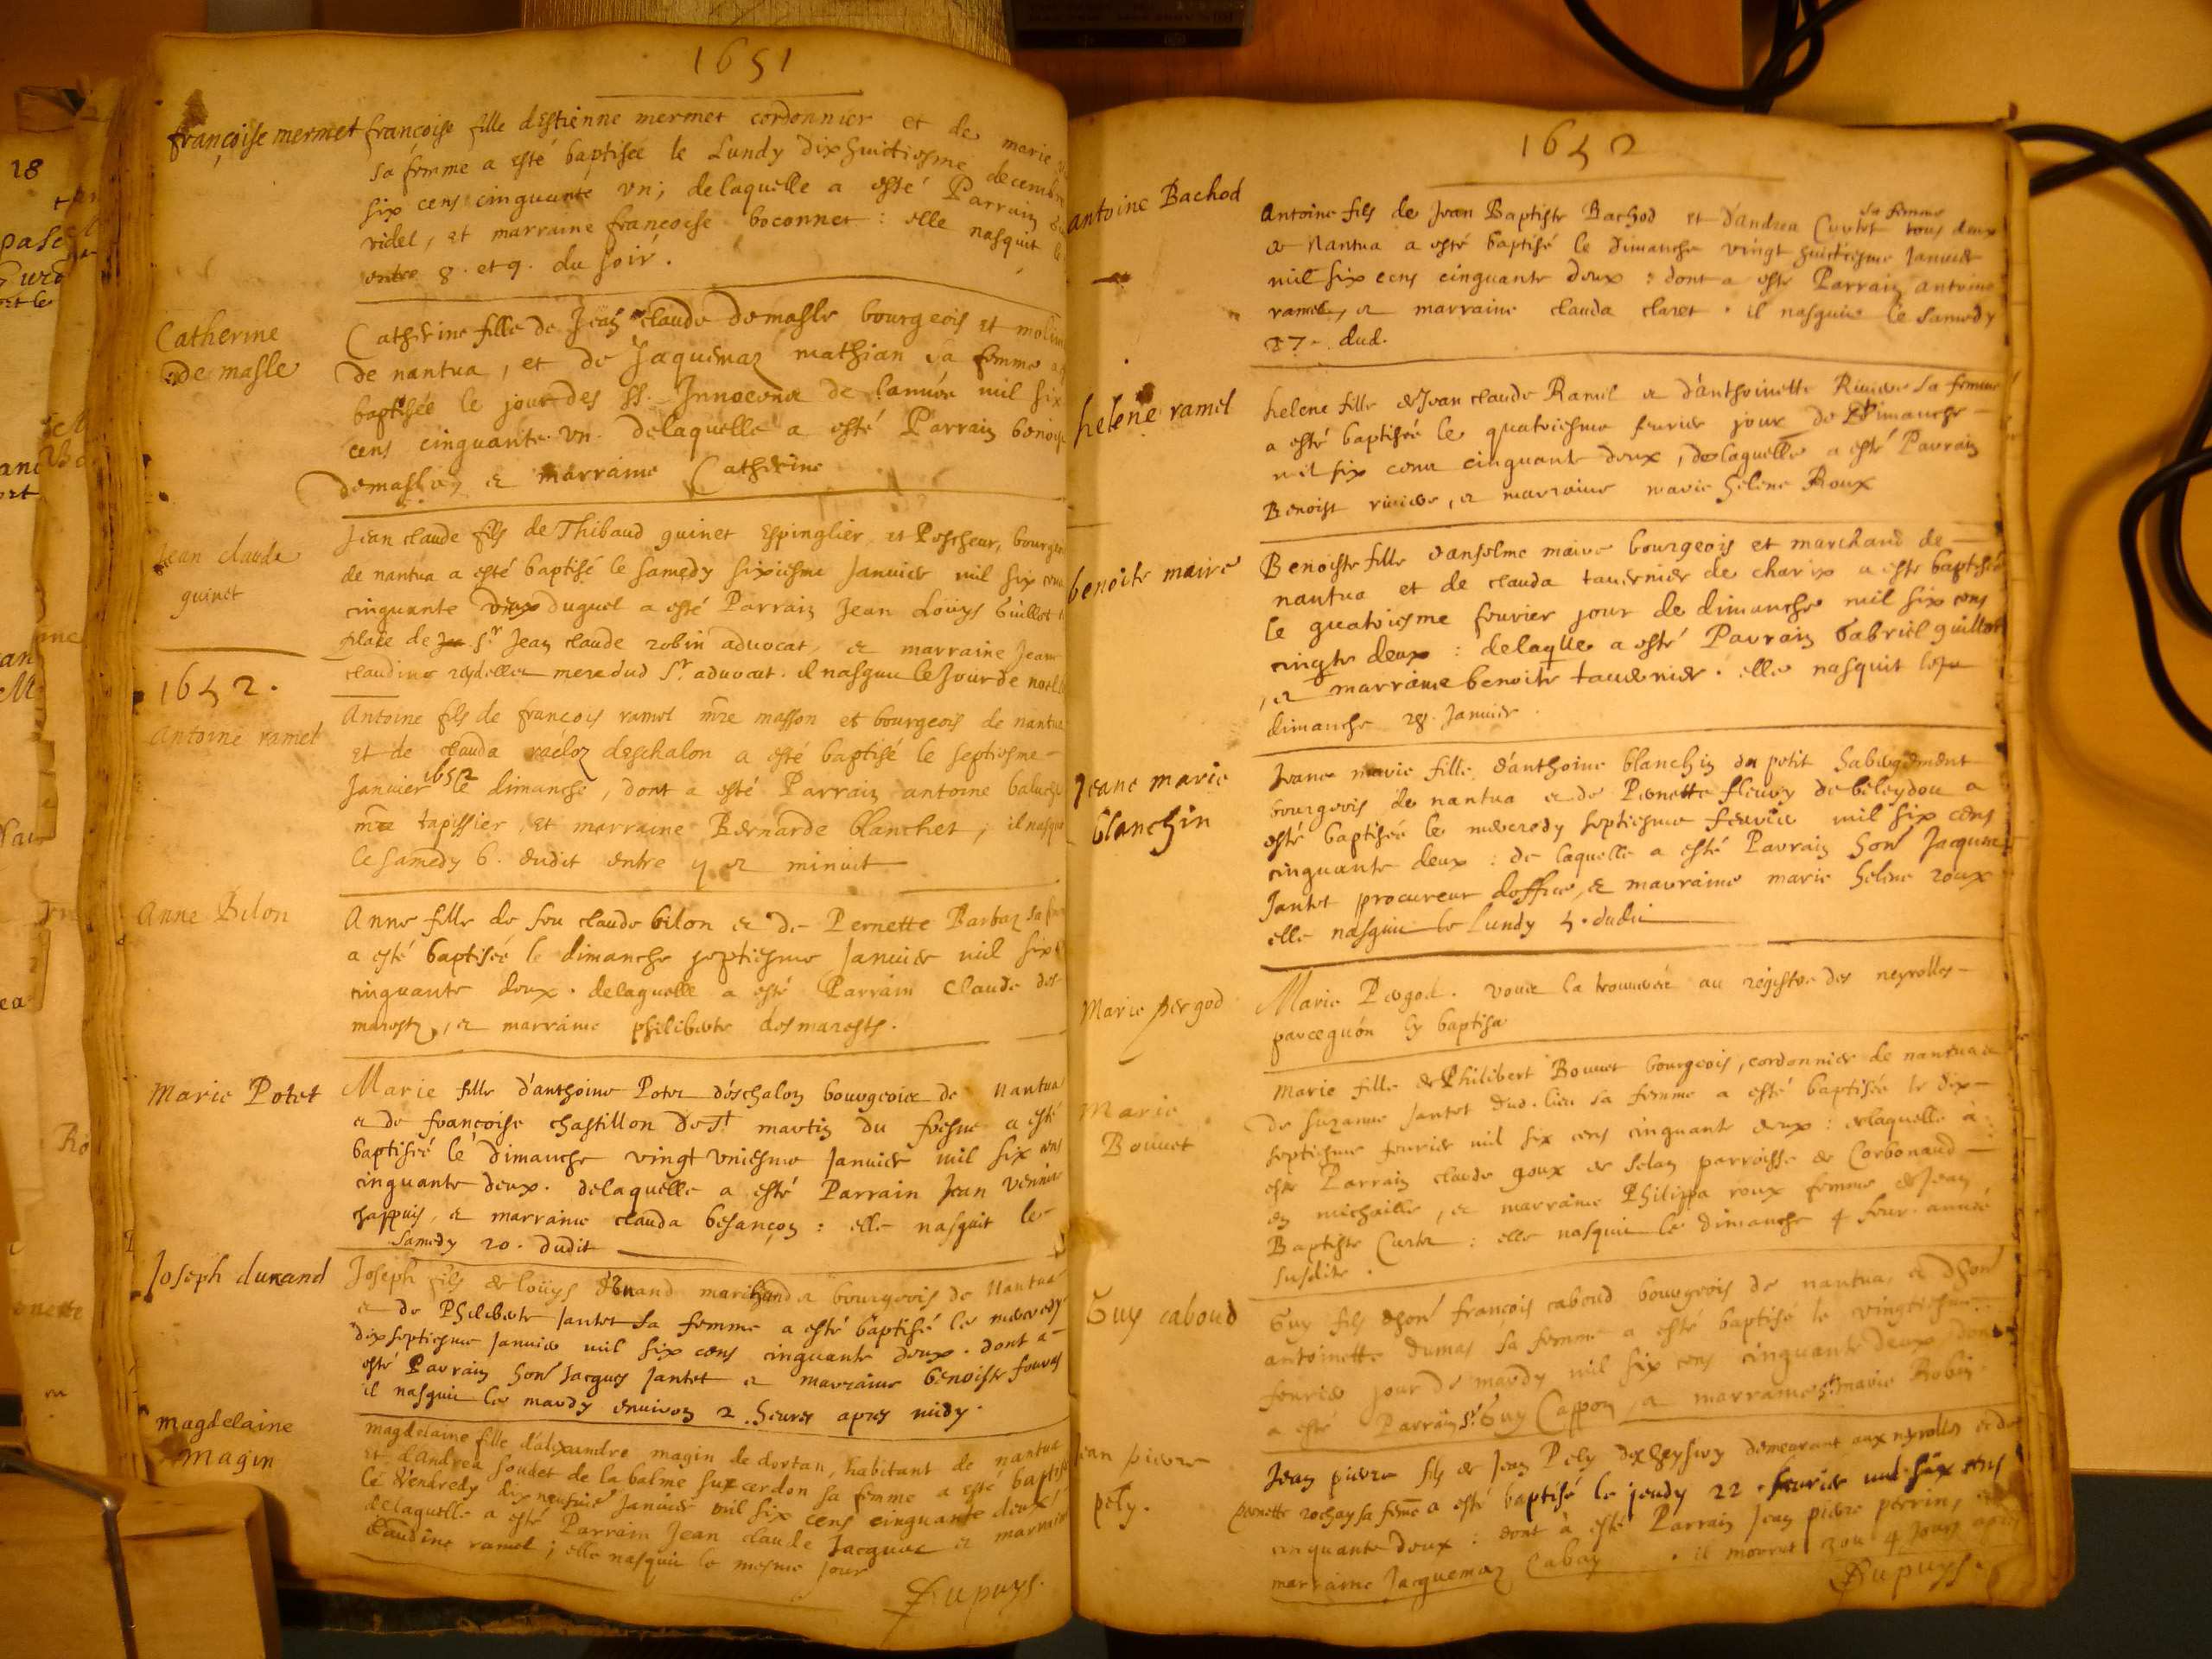 1651
françoise mermet
françoise fille d'Estienne mermet cordonnier et de marie
sa femme a esté baptisée le Lundy dixhuictiesme decembre
six cens cinquante un; de laquelle a esté Parrain
videl, et marraine francoise boconnet : elle nasquit le
entre 8. et 9. du soir.
Catherine
de masle
Catherine fille de Jean claude demasle bourgeois et
de nantua, et de Jaquemaz mathian sa femme a
baptisée le jour des SS. Innocens de l'année mil six
cens cinquante un. delaquelle a esté Parrain
et marraine Catherine
Jean claude
guinet
Jean claude fils de Thibaud guinet Espinglier et Pescheur, bourgeois
de nantua a esté baptisé le samedy sixiesme Janvier mil six cens
cinquante deux duquel a esté Parrain Jean Louys Guillot
place de Sr Jean claude robin advocat, et marraine Jeanne
claudine reydellet mere dud Sr advocat. il nasquit le Jour de noel
1652.
Antoine ramel
Antoine fils de francois ramel mre masson et bourgeois de nantua
et de clauda deschalon a esté baptisé le septiesme
Janvier 1652 le dimanche, dont a esté Parrain antoine
mre tapissier, et marraine Bernarde blanchet; il nasquit
le samedy 6. dudit entre 9 et minuit
Anne Bilon
Anne fille de feu claude bilon et de Pernette Barbaz sa femme
a esté baptisée le dimanche septiesme Janvier mil six
cinquante deux. delaquelle a esté Parrain Claude des
marests, et marraine philiberte desmarests.
Marie Potet
Marie fille d'anthoine Potet d'eschalon bourgeois de Nantua
et de francoise chastillon de St martin du fresne a esté
baptisée le dimanche vingt uniesme Janvier mil six cens
cinquante deux. delaquelle a esté Parrain Jean
chappuis, et marraine clauda besançon : elle nasquit le
samedy 20. dudit
Joseph durand
Joseph fils de louys durand marchand et bourgeois de Nantua
et de Philiberte Jantet sa femme a esté baptisé le mercredy
dixseptiesme Janvier mil six cens cinquante deux. dont a
esté Parrain hon Jacques Jantet et marraine benoiste
il nasquit le mardy environ 2 heures apres midy.
magdelaine
magin
magdelaine fille d'alexandre magin de dortan, habitant de nantua
et d'Andrea soudet de la balme sur cerdon sa femme a esté baptisée
le Vendredy dix neufvie Janvier mil six cens cinquante deux
delaquelle a esté Parrain Jean claude Jacquet et marraine
claudine ramel; elle nasquit le mesme Jour
Dupuys.
1652
antoine Bachod
Antoine fils de Jean Baptiste Bachod et d'andrea Curtet sa femme tous deux
de Nantua a esté baptisé le dimanche vingt huictiesme Janvier
mil six cens cinquante deux : dont a esté Parrain antoine
ramel, et marraine clauda claret. il nasquit le samedy
27. dud.
helene ramel
helene fille de Jean claude Ramel et d'anthoinette Riviere sa femme
a esté baptisée le quatriesme fevrier jour de Dimanche
mil six cens cinquante deux, delaquelle a esté Parrain
Benoist riviere, et marraine marie helene Roux
benoite maire
Benoiste fille d'anselme maire bourgeois et marchand de
nantua et de clauda tavernier de charix a esté baptisée
le quatriesme fevrier jour de dimanche mil six cens
cinqte deux : delaqlle a esté Parrain Gabriel guillot
, et marraine benoite tavernier. elle nasquit le
dimanche 28. Janvier
Jeane marie
blanchin
Jeane marie fille d'anthoine blanchin du petit habergement
bourgeois de nantua et de Pernette fleury de beleydou a
esté baptisée le mercredy septiesme fevrier mil six cens
cinquante deux : de laquelle a esté Parrain hon Jacques
Jantet procureur d'office, et marraine marie helene roux
elle nasquit le Lundy 5. dudit
Marie pergod
Marie Pergod. voués la trouverés au registre des neyrolles
parcequ'on l'y baptisa
Marie
Bouvet
Marie fille de Philibert Bouvet bourgeois, cordonnier de nantua et
de suzanne Jantet dud. lieu sa femme a esté baptisée le dix
septiesme fevrier mil six cens cinquante deux : delaquelle a
esté Parrain claude goux de selan parroisse de Corbonaud
en michaille, et marraine Philippa roux femme de Jean
Baptiste Curtet : elle nasquit le dimanche 4 fevr. année
susdite.
Guy caboud
Guy fils d'hon françois caboud bourgeois de nantua, et d'hon
antoinette dumas sa femme a esté baptisé le vingtiesme
fevrier jour de mardy mil six cens cinquante deux dont
a esté Parrain Sr Guy Cappon, et marraine marie Robin
Jean pierre
pely.
Jean pierre fils de Jean Pely demeurant aux neyrolles et de
pernette rochay sa feme a esté baptisé le jeudy 22. fevrier mil six cens
cinquante deux : dont à esté Parrain Jean pierre perrin, et
marraine Jacquemaz Cabay. il mourut 3 ou 4 Jours apres
Dupuys.